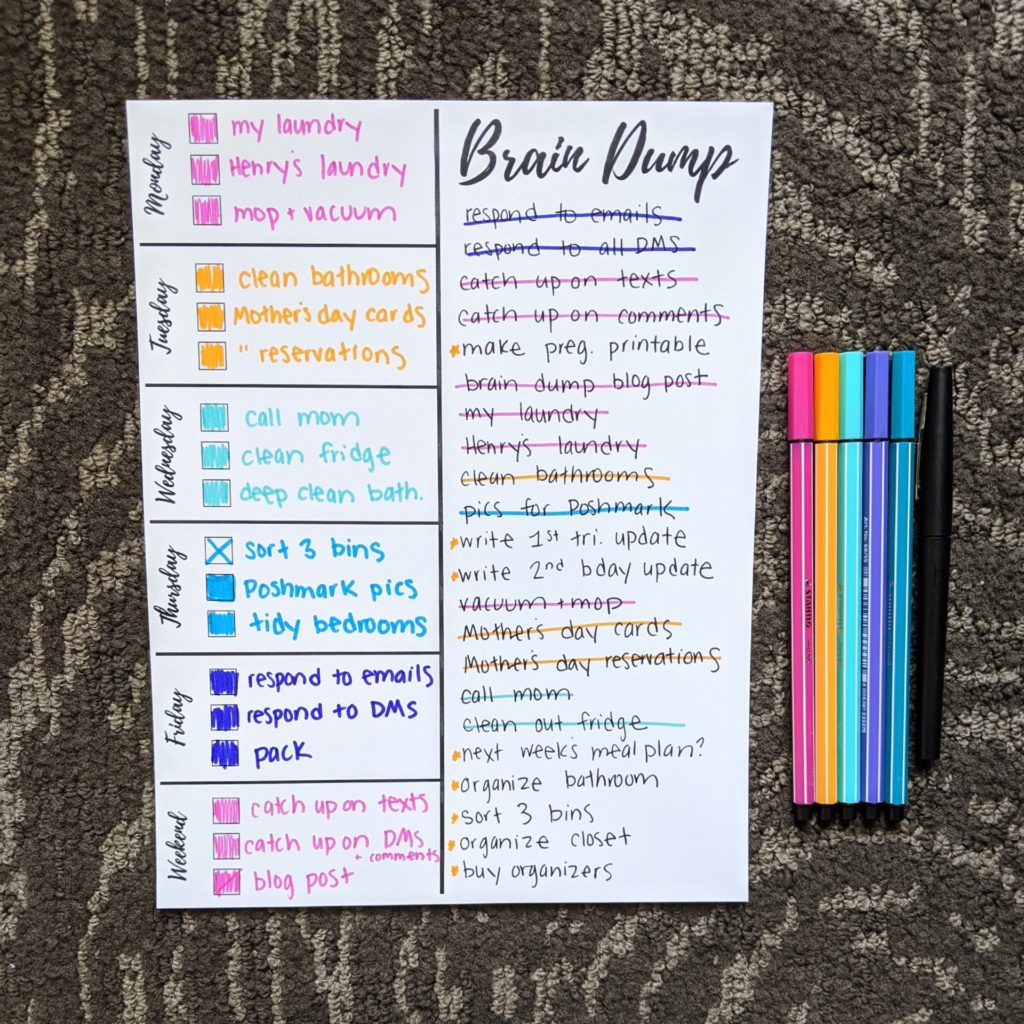 Monday
my laundry
Henry's laundry
mop + vacuum
Tuesday
clean bathrooms
Mother's day cards
" reservations
Wednesday
call mom
clean fridge
deep clean bath.
Thursday
sort 3 bins
Poshmark pics
tidy bedrooms
Friday
respond to emails
respond to DMs
pack
Weekend
catch up on texts
catch up on DMs
+ comments
blog post
Brain Dump
respond to emails
respond to all DMS
catch up on texts
catch up on comments
make preg. printable
brain dump blog post
my laundry
Henry's laundry
clean bathrooms
pics for Poshmark
write 1st tri. update
write 2nd bday update
vacuum + mop
Mother's day cards
Mother's day reservations
call mom
clean out fridge
next week's meal plan?
organize bathroom
sort 3 bins
organize closet
buy organizers
STABILO